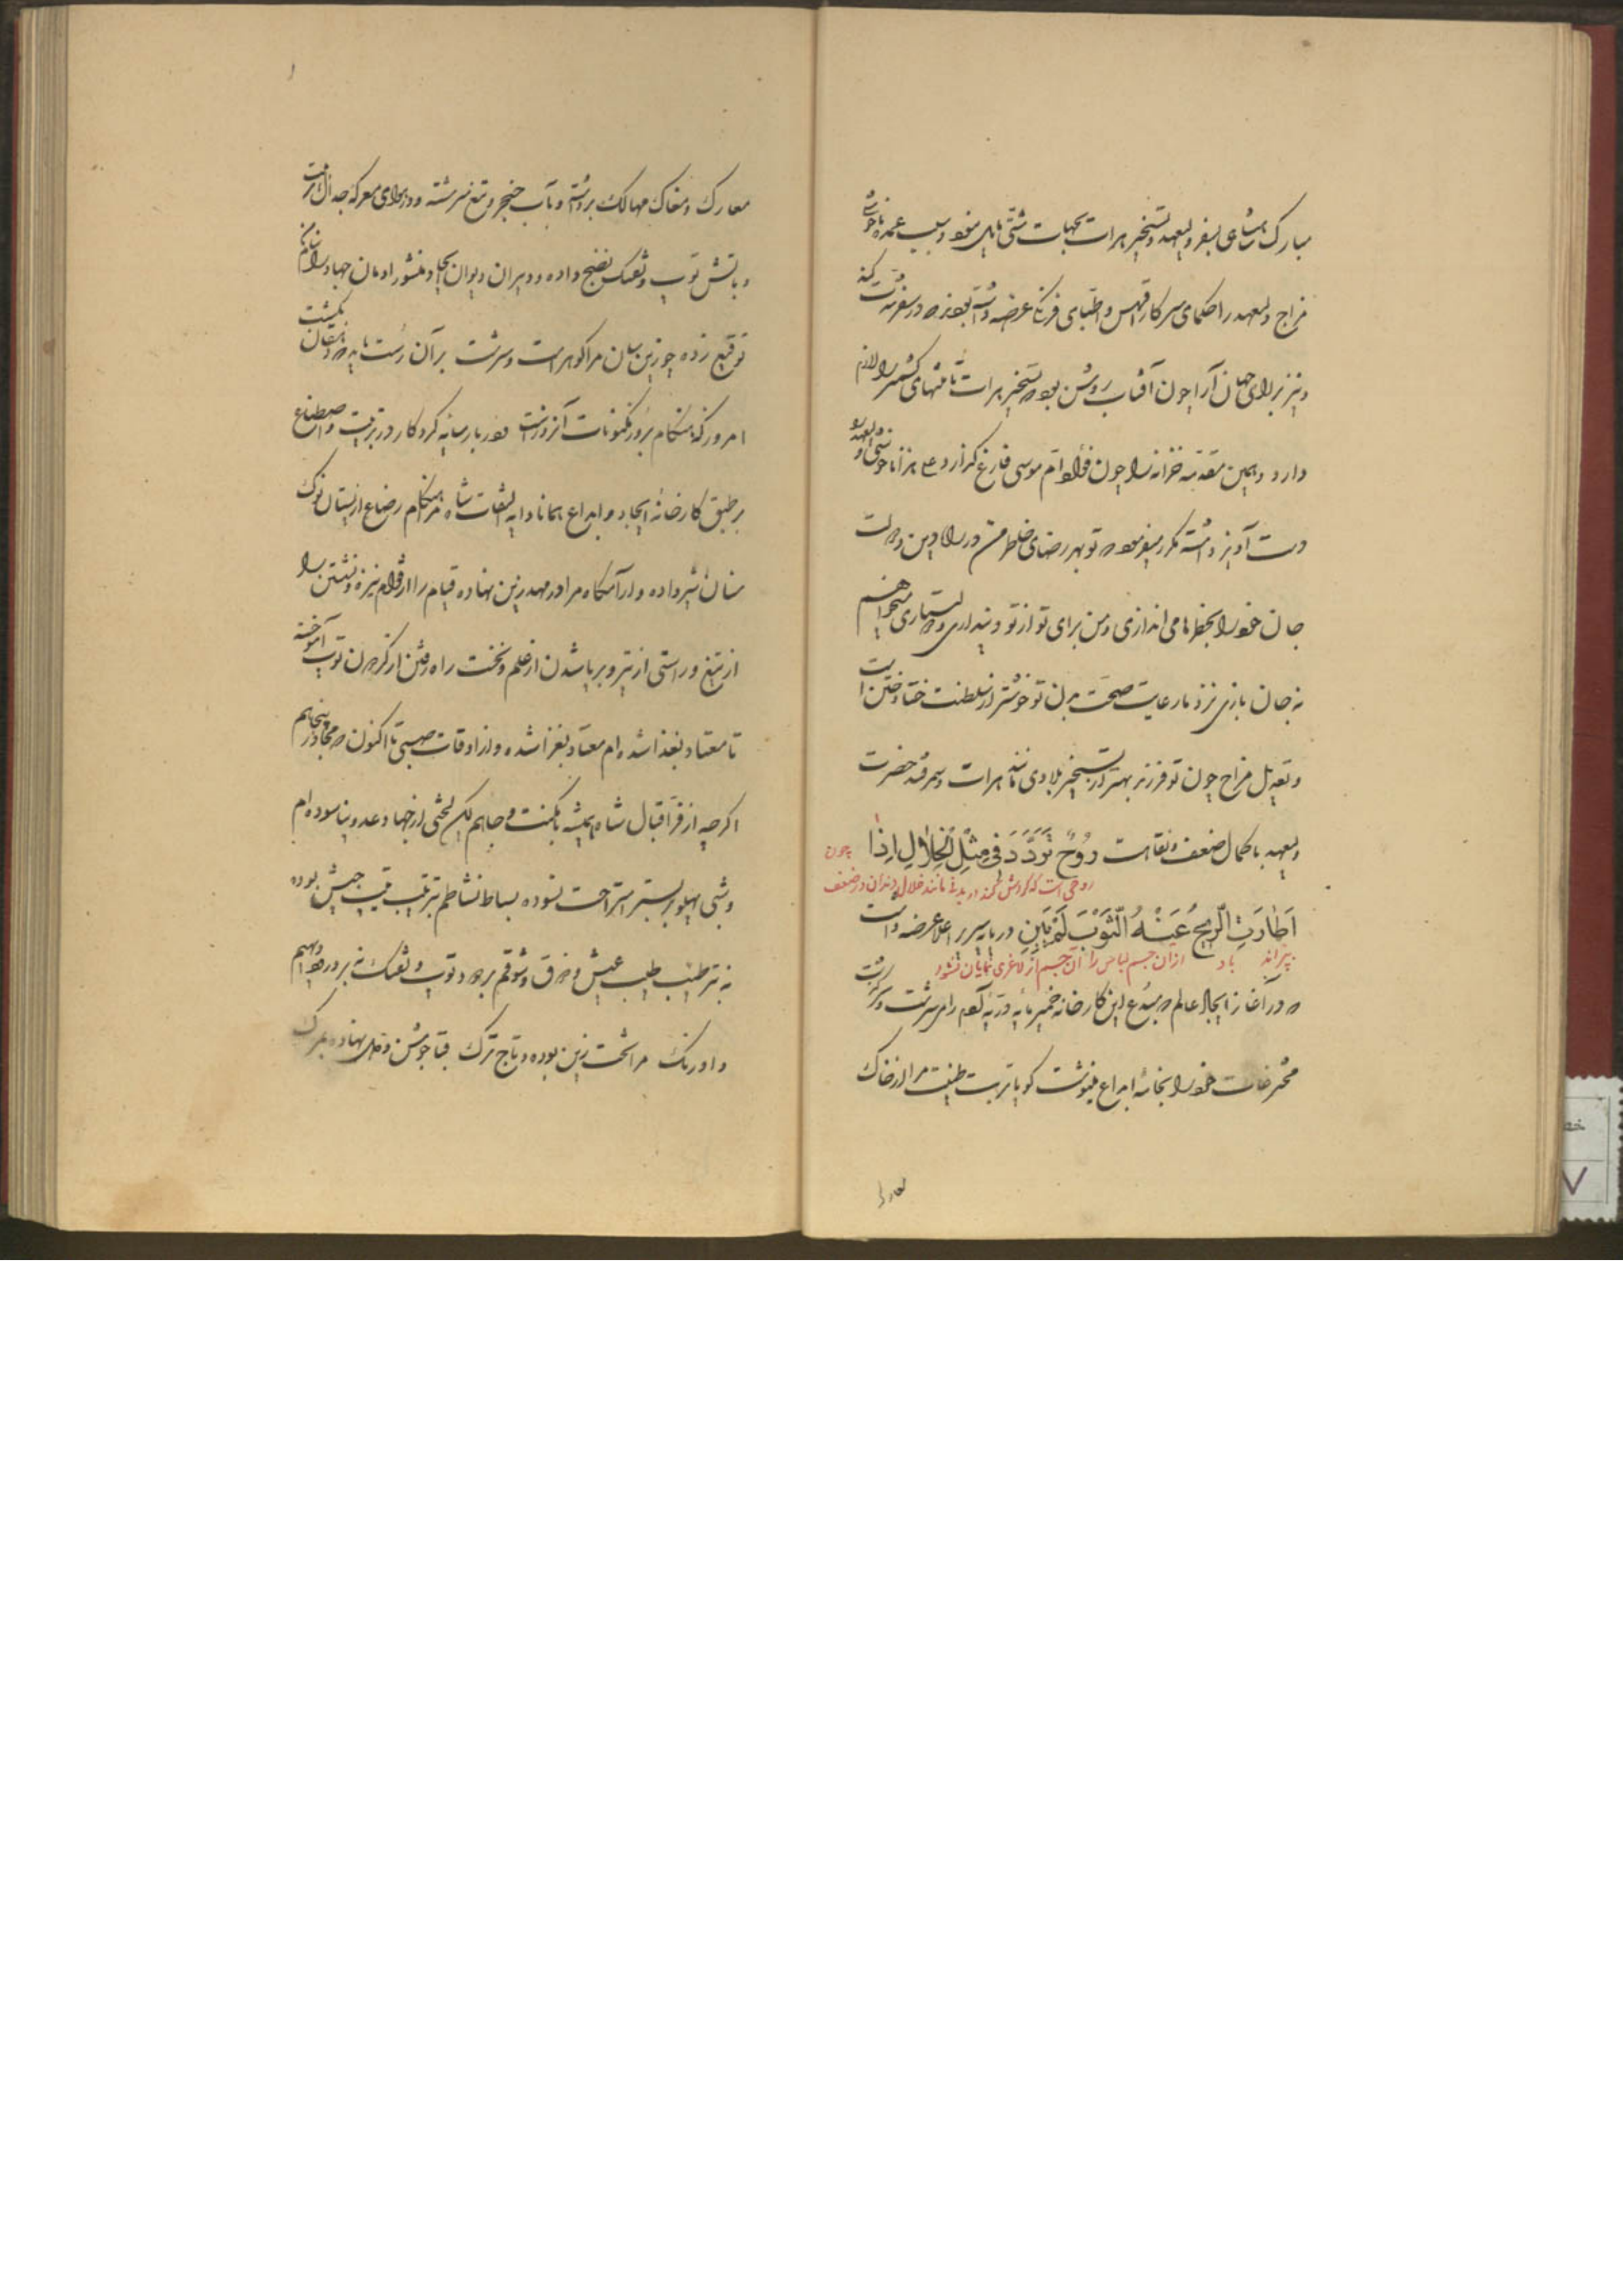 مبارک شاهی بسفر ولیعهد و تسخیر هرات بجهات شتی مایل نبود و سبب عمده ناخوشی
مزاج ولیعهد را حکمای سرکار اقدس و اطبای فرنگ عرضه داشته بودند که در سفر شدت کند
و نیز بر رای جهان آرا چون آفتاب روشن بود که تسخیر هرات تا منتهای کشمیر را لازم
دارد و همین مقدمه خزانه را چون فؤاد ام موسی فارغ گرداند ناخوشی ولیعهد را
دست آویز داشته مکرر میفرمود که تو بهر رضای خاطر من در راه دین و دولت
جان خود را بخطرها می اندازی و من برای تو از تو دینداری و هشیاری میخواهم
نه جان بازی نزد ما رعایت صحت بدن تو خوشتر از سلطنت ختا و ختن است
و تعدیل مزاج چون تو فرزند بهتر از تسخیر بلادی مانند هرات و سمرقند حضرت
ولیعهد با کمال ضعف و نقاهت رُوحٌ تَرَدَّدَ فی مِثْلِ الْخِلالِ اِذا
چون روحی است که گردش کند در بدنی مانند خلال دندان در ضعف
اَطارَتِ الرّیحُ عَنْهُ الثَّوْبَ لَمْ یَبِنِ در پایه سریر اعلا عرضه داشت
بپراند باد از آن جسم لباس را آن جسم از لاغری نمایان نشود
که در آغاز ایجاد عالم که مبدع این کارخانه خمیر مایه ذریه آدم را می سرشت و سرگذشت
مخترعات خود را بخامه ابداع مینوشت گویا تربت طینت مرا از خاک
معارک
معارک و مغاک مهالک برداشته و بآب خنجر و تیغ سرشته و در هوای معرکه جدال
و بآتش توپ و تفنگ نضج داده و دبیران دیوان ایجاد منشور ادمان جهاد را بنام
توقیع زده چو زین سان مرا گوهر است و سرشت بر آن رست باید که دهقان بکشت
امروز که هنگام بروز مکنونات آنروز است
بر طبق کارخانه ایجاد و ابداع همانا دایه التفات شاه مرا هنگام رضاع از پستان نوک
سنان شیر داده و آرامگاه مرا در مهد زین نهاده قیام را از قوام نیزه و نشستن را
از تیغ و راستی از تیر و بر پا شدن از علم و نخست راه رفتن از گردون توپ آموخته
تا معتاد بغذا شده ام معتاد بغزا شده و از اوقات صبی تا اکنون که مجاور پنجاهم
اگر چه از فر اقبال شاه همیشه با مکنت و جاهم لیکن لختی از جهاد عدو نیاسوده ام
و شبی پهلو بر بستر استراحت نسوده بساط نشاطم ترتیب جیش بوده
نه ترطیب طیب عیش و ذوق و شوقم توپ و تفنگ نه
و اورنگ مرا تخت زین بوده و تاج ترگ قبا جوشن و دل نهاده بمرگ